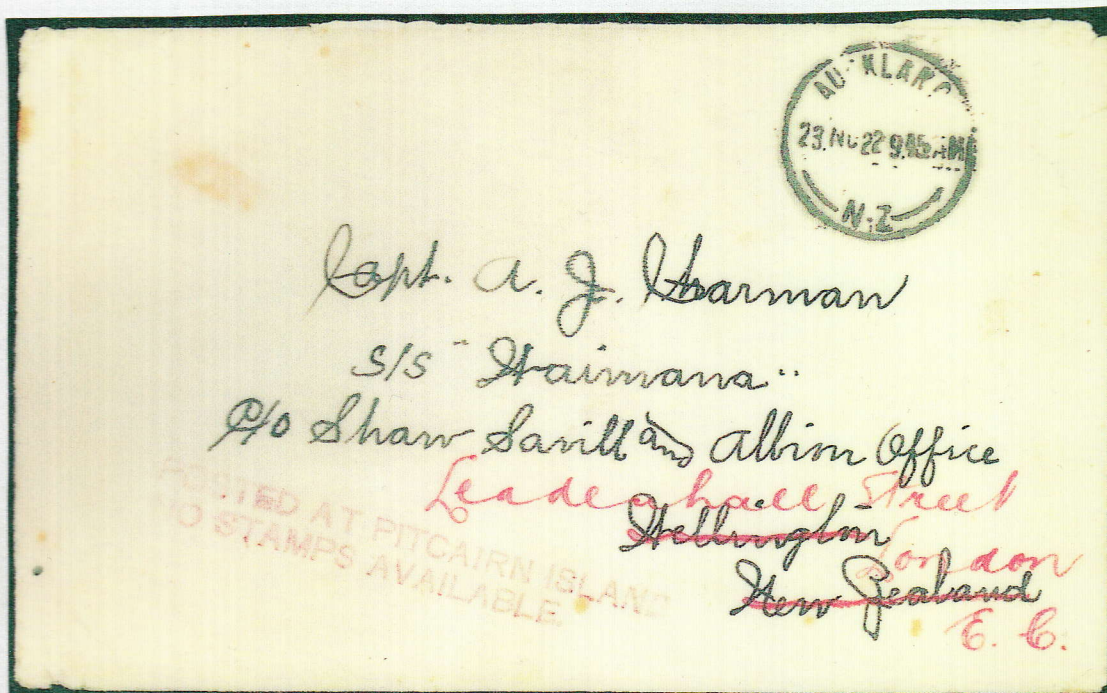 AUCKLAND
23.NO 22 9.45 AM
N.Z
Capt. A. J. Charman
S/S "Waimana"
C/o Shaw Savill and Albion Office
Leadenhall Street
Wellington
London
New Zealand
E. C.
POSTED AT PITCAIRN ISLAND
NO STAMPS AVAILABLE